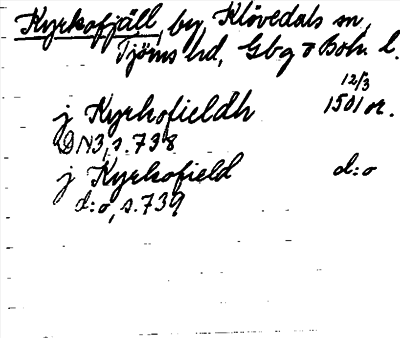 Kyrkofjäll, by, Klövedals sn,
Tjörns hd, Gbg o Boh. l.
12/3
j Kyrkofieldh 1501 or.
DN3, s. 738
j Kyrkofield d:o
d:o, s. 739